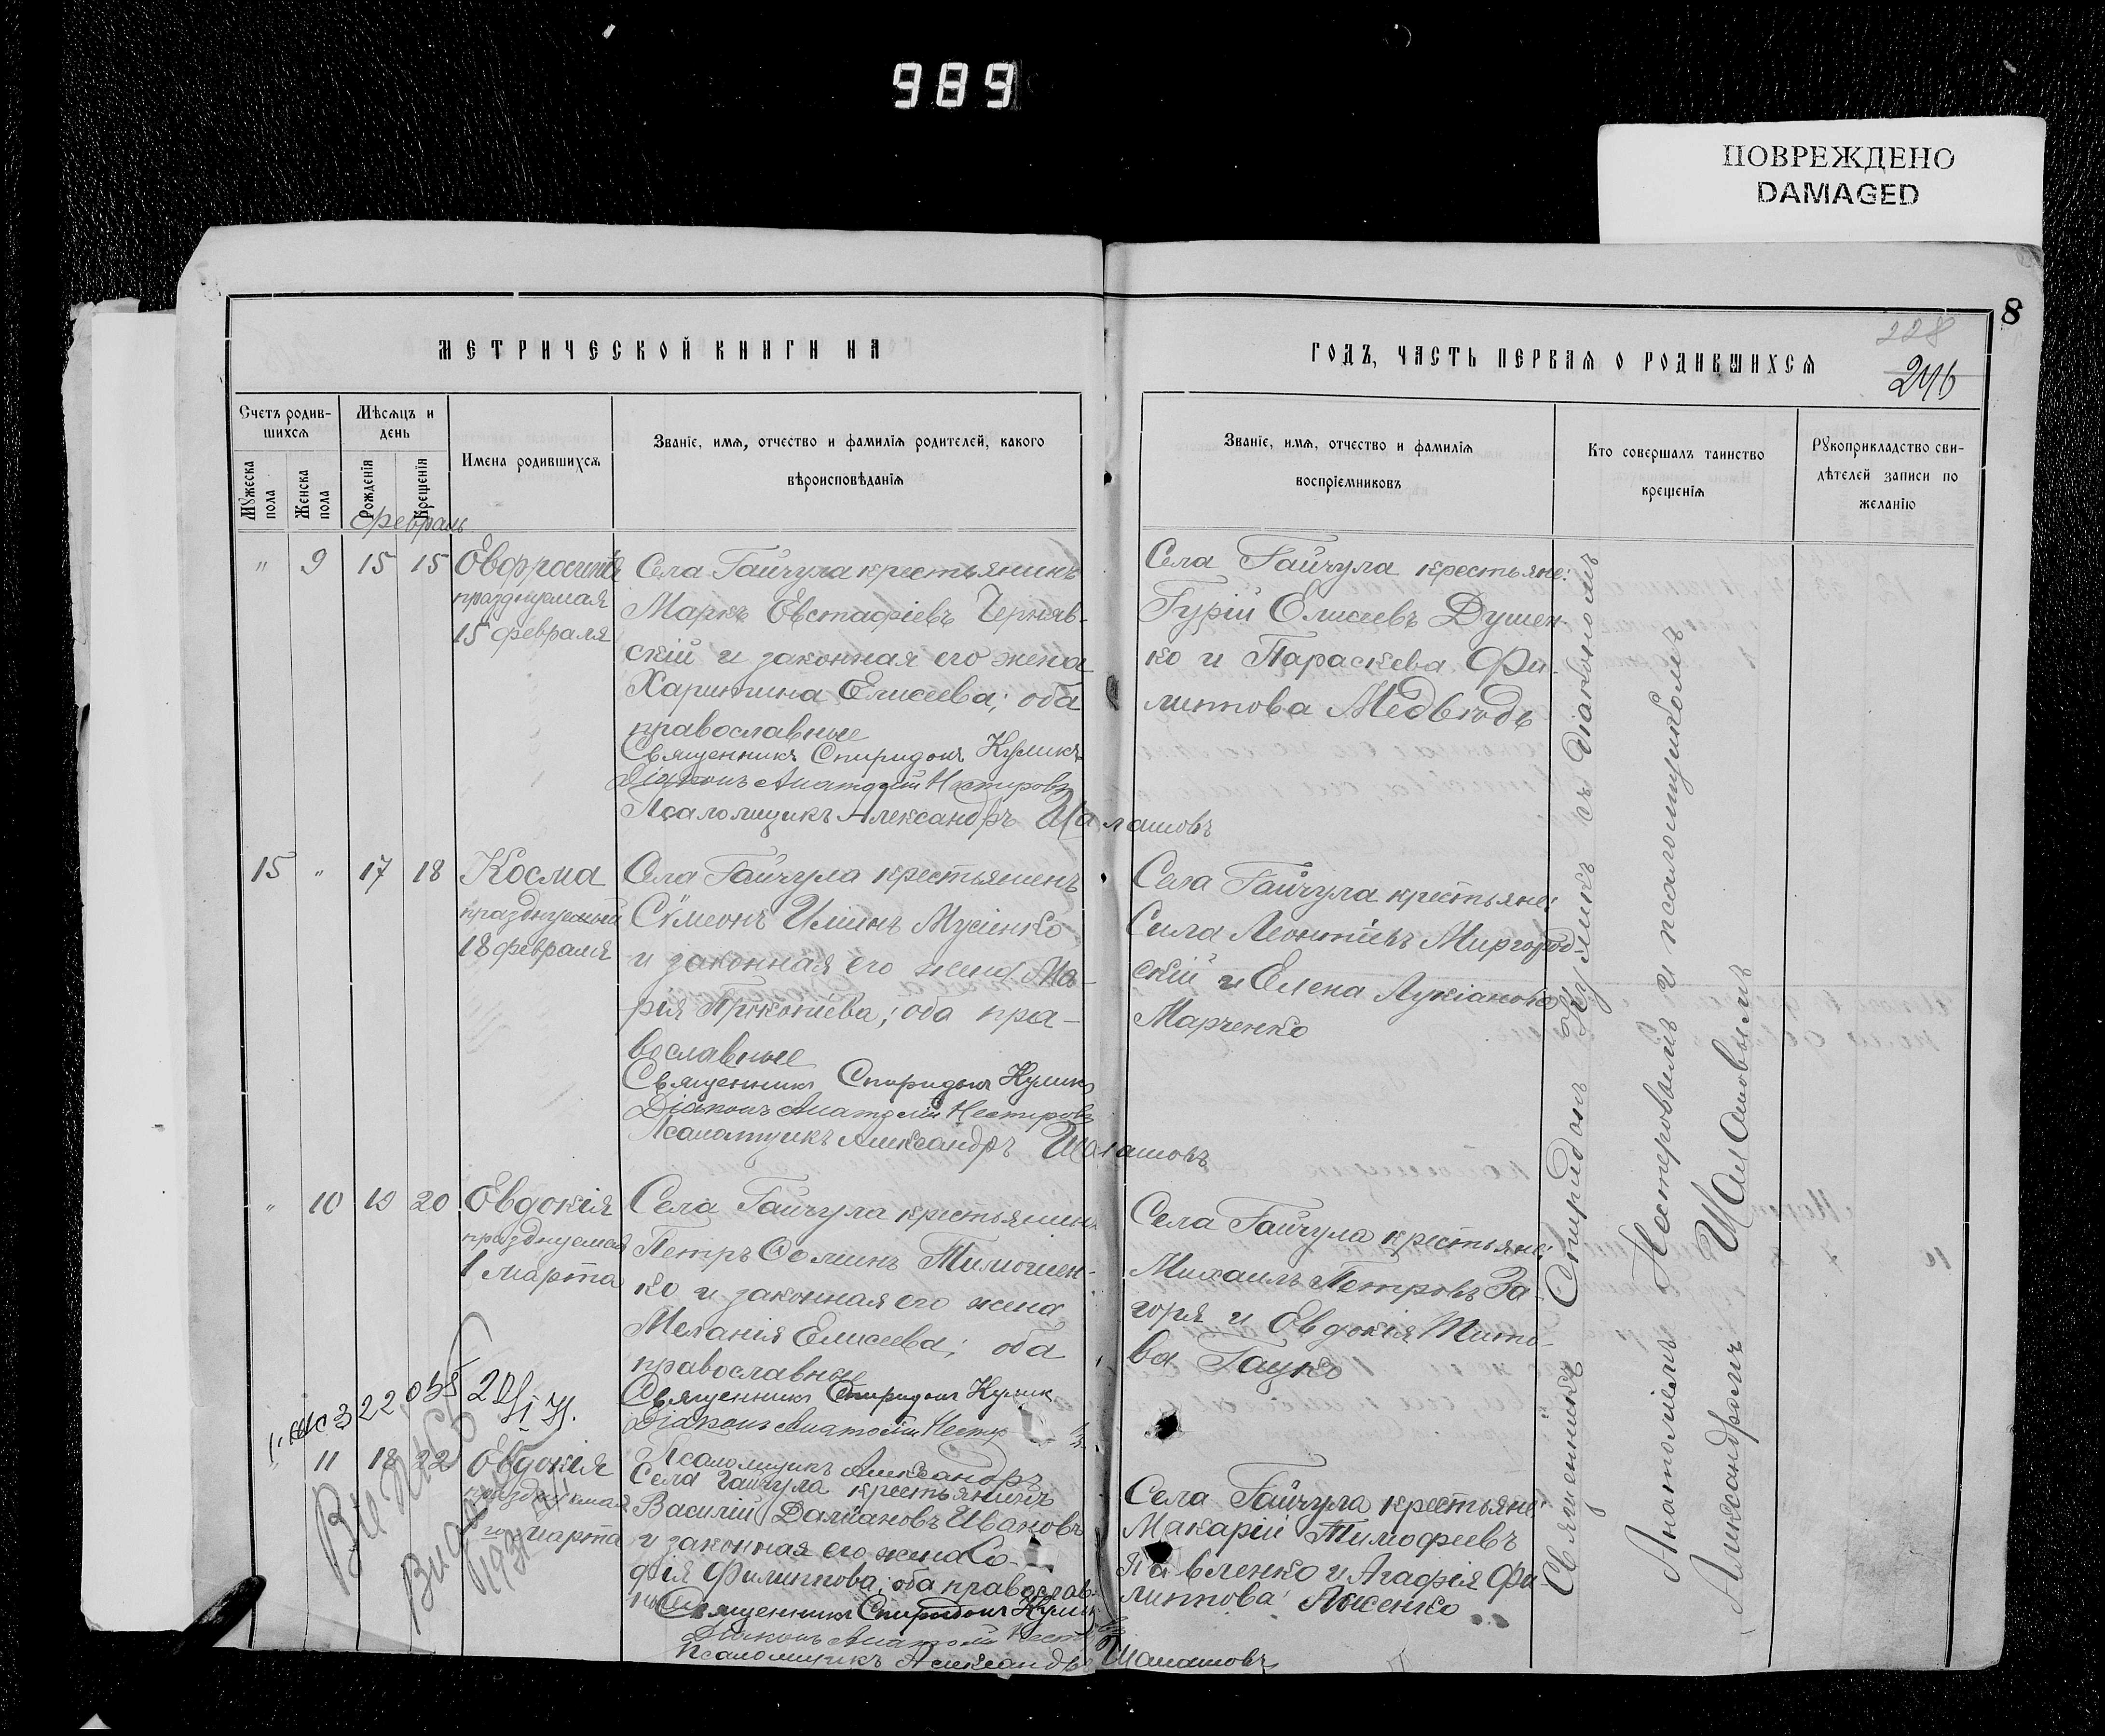 989
ПОВРЕЖДЕНО
DAMAGED
8
МЕТРИЧЕСКОЙ КНИГИ НА
ГОДЪ, ЧАСТЬ ПЕРВАЯ О РОДИВШИХСЯ
228
246
Счетъ родив-
шихся
Мужеска пола
Женска пола
Мѣсяцъ и
день
Рожденія
Крещенія
Имена родившихся
Званіе, имя, отчество и фамилія родителей, какого
вѣроисповѣданія
Званіе, имя, отчество и фамилія
воспріемниковъ
Кто совершалъ таинство
крещенія
Рукоприкладство сви-
дѣтелей записи по
желанію
февраль
" 9 15 15
Евфросинія
празднуемая
15 февраля
Села Гайчула крестьянинъ
Маркъ Евстафіевъ Черняв-
скій и законная его жена
Харитина Елисеева; оба
православные
Священникъ Спиридонъ Куликъ
Діаконъ Анатолій Нестеровъ
Псаломщикъ Александръ Шалашовъ
Села Гайчула крестьяне:
Гурій Елисеевъ Душен-
ко и Параскева Фи-
липпова Медвѣдь
15 " 17 18
Косма
празднуемый
18 февраля
Села Гайчула крестьянинъ
Сѵмеонъ Ильинъ Мусіенко
и законная его жена Ма-
рія Прокопіева; оба пра-
вославные
Священникъ Спиридонъ Куликъ
Діаконъ Анатолій Нестеровъ
Псаломщикъ Александръ Шалашовъ
Села Гайчула крестьяне:
Сила Леонтіевъ Миргород-
скій и Елена Лукіанова
Марченко
" 10 19 20
Евдокія
празднуемая
1 марта
Села Гайчула крестьянинъ
Петръ Ѳоминъ Тимошен-
ко и законная его жена
Меланія Елисеева; оба
православные
Священникъ Спиридонъ Куликъ
Діаконъ Анатолій Нестр
Псаломщикъ Александръ
Села Гайчула крестьяне:
Михаилъ Петровъ За-
горя и Евдокія Тито-
ва Гауко
" 11 18 22
Евдокія
празднуемая
1го марта
Села Гайчула крестьянинъ
Василій Даміановъ Ивановъ
и законная его жена Со-
фія Филиппова; оба православ-
ные
Священникъ Спиридонъ Куликъ
Діаконъ Анатолій Нест
Псаломщикъ Александръ Шалашовъ
Села Гайчула крестьяне:
Макарій Тимофеевъ
Павленко и Агафія Фи-
липпова
Священникъ Спиридонъ Куликъ съ діакономъ
Анатоліемъ Нестеровымъ и псаломщикомъ
Александромъ Шалашовымъ